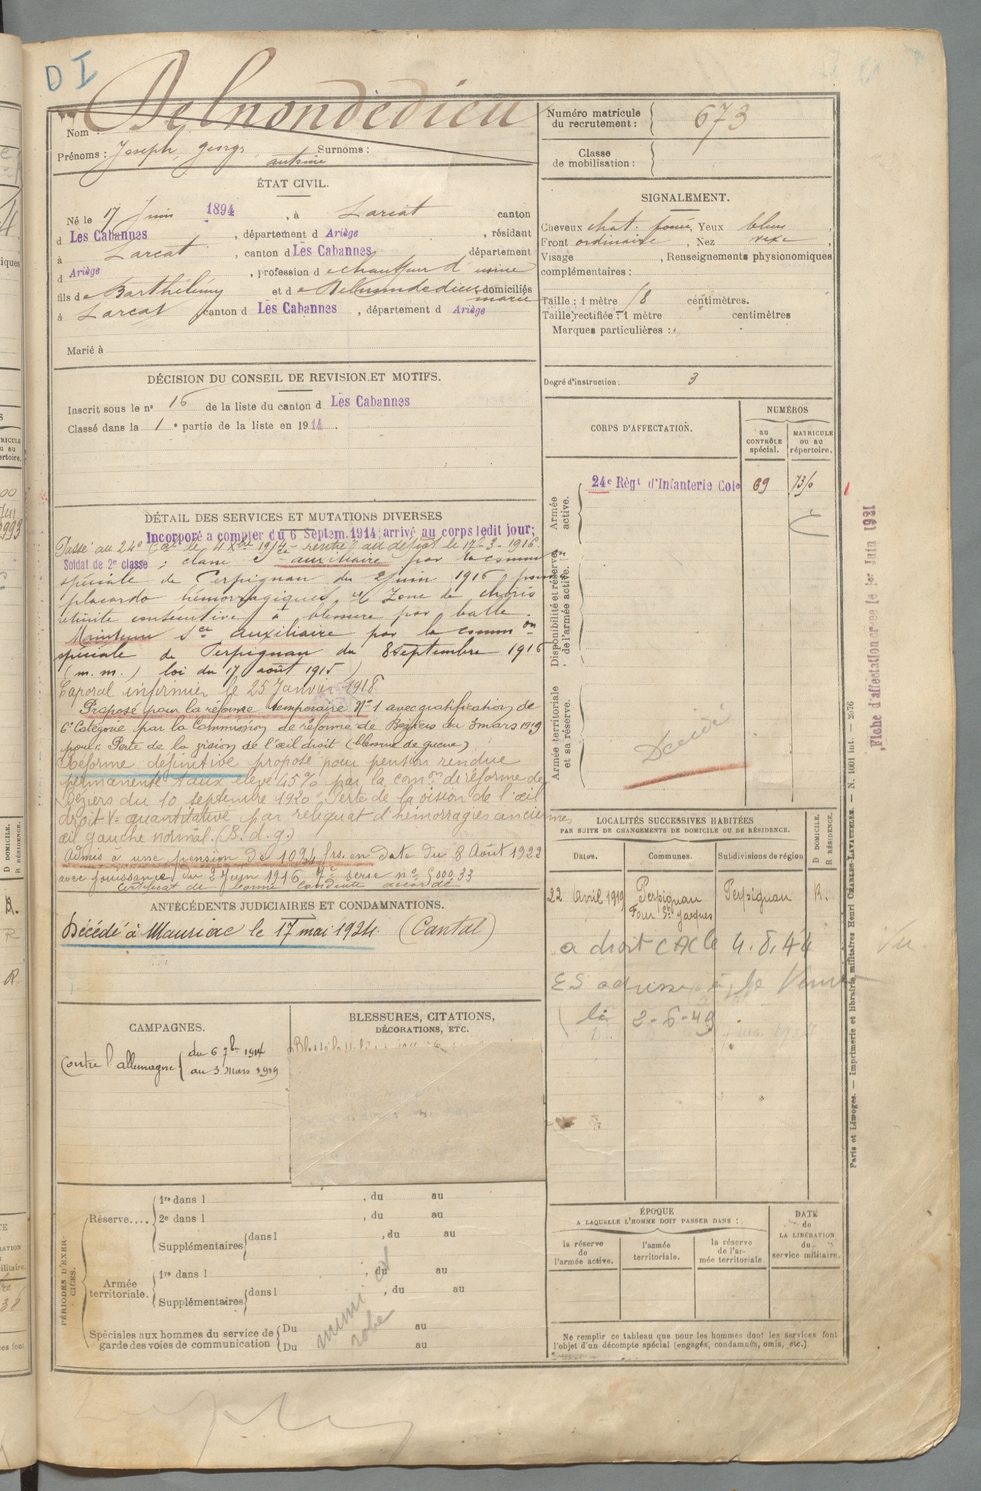 D I
Nom : Delnondedieu
Prénoms : Joseph, georges, antoine Surnoms :
Numéro matricule du recrutement : 673
Classe de mobilisation :
ÉTAT CIVIL.
Né le 17 Juin 1894, à Larcat canton
d Les Cabannes, département d Ariège, résidant
à Larcat, canton d Les Cabannes, département
d Ariège, profession d e chauffeur d'usine
fils de Barthélémy et de Delnondedieu marie domiciliés
à Larcat canton d Les Cabannes, département d Ariège
Marié à
SIGNALEMENT.
Cheveux chat. foncé, Yeux bleus
Front ordinaire, Nez vexe,
Visage , Renseignements physionomiques
complémentaires :
Taille : 1 mètre 78 centimètres.
Taille rectifiée : 1 mètre centimètres
Marques particulières :
Degré d'instruction : 3
DÉCISION DU CONSEIL DE REVISION ET MOTIFS.
Inscrit sous le n° 16 de la liste du canton d Les Cabannes
Classé dans la 1e partie de la liste en 1914.
CORPS D'AFFECTATION.
NUMÉROS
AU CONTRÔLE spécial.
MATRICULE ou au répertoire.
Armée active.
24e Régt d'Infanterie Cole 69
Disponibilité et réserve de l'armée active.
Armée territoriale et sa réserve.
Décédé
DÉTAIL DES SERVICES ET MUTATIONS DIVERSES
Incorporé à compter du 6 Septem. 1914, arrivé au corps ledit jour;
Soldat de 2e classe
Passé au 24e Cal le 4 Xbre 1914 - rentré au dépôt le 17-3-1916
; classé Sce auxiliaire par la comm
spéciale de Perpignan du 2 juin 1916 pour
placards hémorragiques et Zone de chorio
rétinite consécutive à blessure par balle.
Maintenu Sce auxiliaire par la common
spéciale de Perpignan du 8 septembre 1916
(m. m.) loi du 17 août 1915)
Caporal infirmier le 25 Janvier 1918
Proposé pour la réforme temporaire N° 1 avec gratification de
6e Catégorie par la Commission de réforme de Béziers du 3 mars 1919
pour: Perte de la vision de l'œil droit (blessure de guerre)
Réforme définitive proposé pour pension rendue
permanente taux élevé 45% par la comon de réforme de
Béziers du 10 septembre 1920 "Perte de la vision de l'œil
droit V= quantitative par reliquat d'hémorragies anciennes
œil gauche normal. (B. d. g.)
Admis à une pension de 1094 frs. en date du 8 Août 1922
avec jouissance du 2 Juin 1916
Certificat de bonne Conduite accordé
ANTÉCÉDENTS JUDICIAIRES ET CONDAMNATIONS.
Décédé à Mauriac le 17 mai 1924. (Cantal)
LOCALITÉS SUCCESSIVES HABITÉES
PAR SUITE DE CHANGEMENTS DE DOMICILE OU DE RÉSIDENCE.
Dates. Communes. Subdivisions de région D DOMICILE. R RÉSIDENCE.
22 avril 1919 Perpignan Perpignan R.
Four St Jacques
a droit CAC le 4.8.44
le 2-6-49
CAMPAGNES.
Contre l'allemagne du 6 7bre 1914
au 3 Mars 1919
BLESSURES, CITATIONS,
DÉCORATIONS, ETC.
PÉRIODES D'EXERCICES.
Réserve....
1re dans l , du au
2e dans l , du au
Supplémentaires dans l , du au
Armée territoriale.
1re dans l , du au
Supplémentaires dans l , du au
Spéciales aux hommes du service de garde des voies de communication
Du au
Du au
ÉPOQUE
A LAQUELLE L'HOMME DOIT PASSER DANS :
la réserve de l'armée active.
l'armée territoriale.
la réserve de l'armée territoriale
DATE de LA LIBÉRATION du service militaire.
Ne remplir ce tableau que pour les hommes dont les services font
l'objet d'un décompte spécial (engagés, condamnés, omis, etc.)
Paris et Limoges. — Imprimerie et librairie militaires Henri CHARLES-LAVAUZELLE. — N. 1001 int.
Fiche d'affectation créée le 1er Juin 1921
Vu